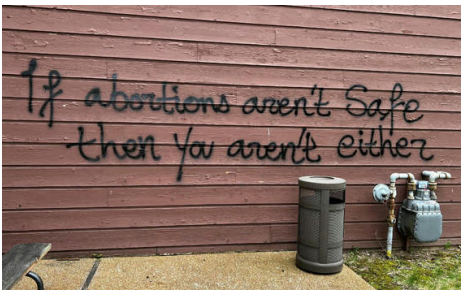 If abortions aren't Safe
then you aren't either